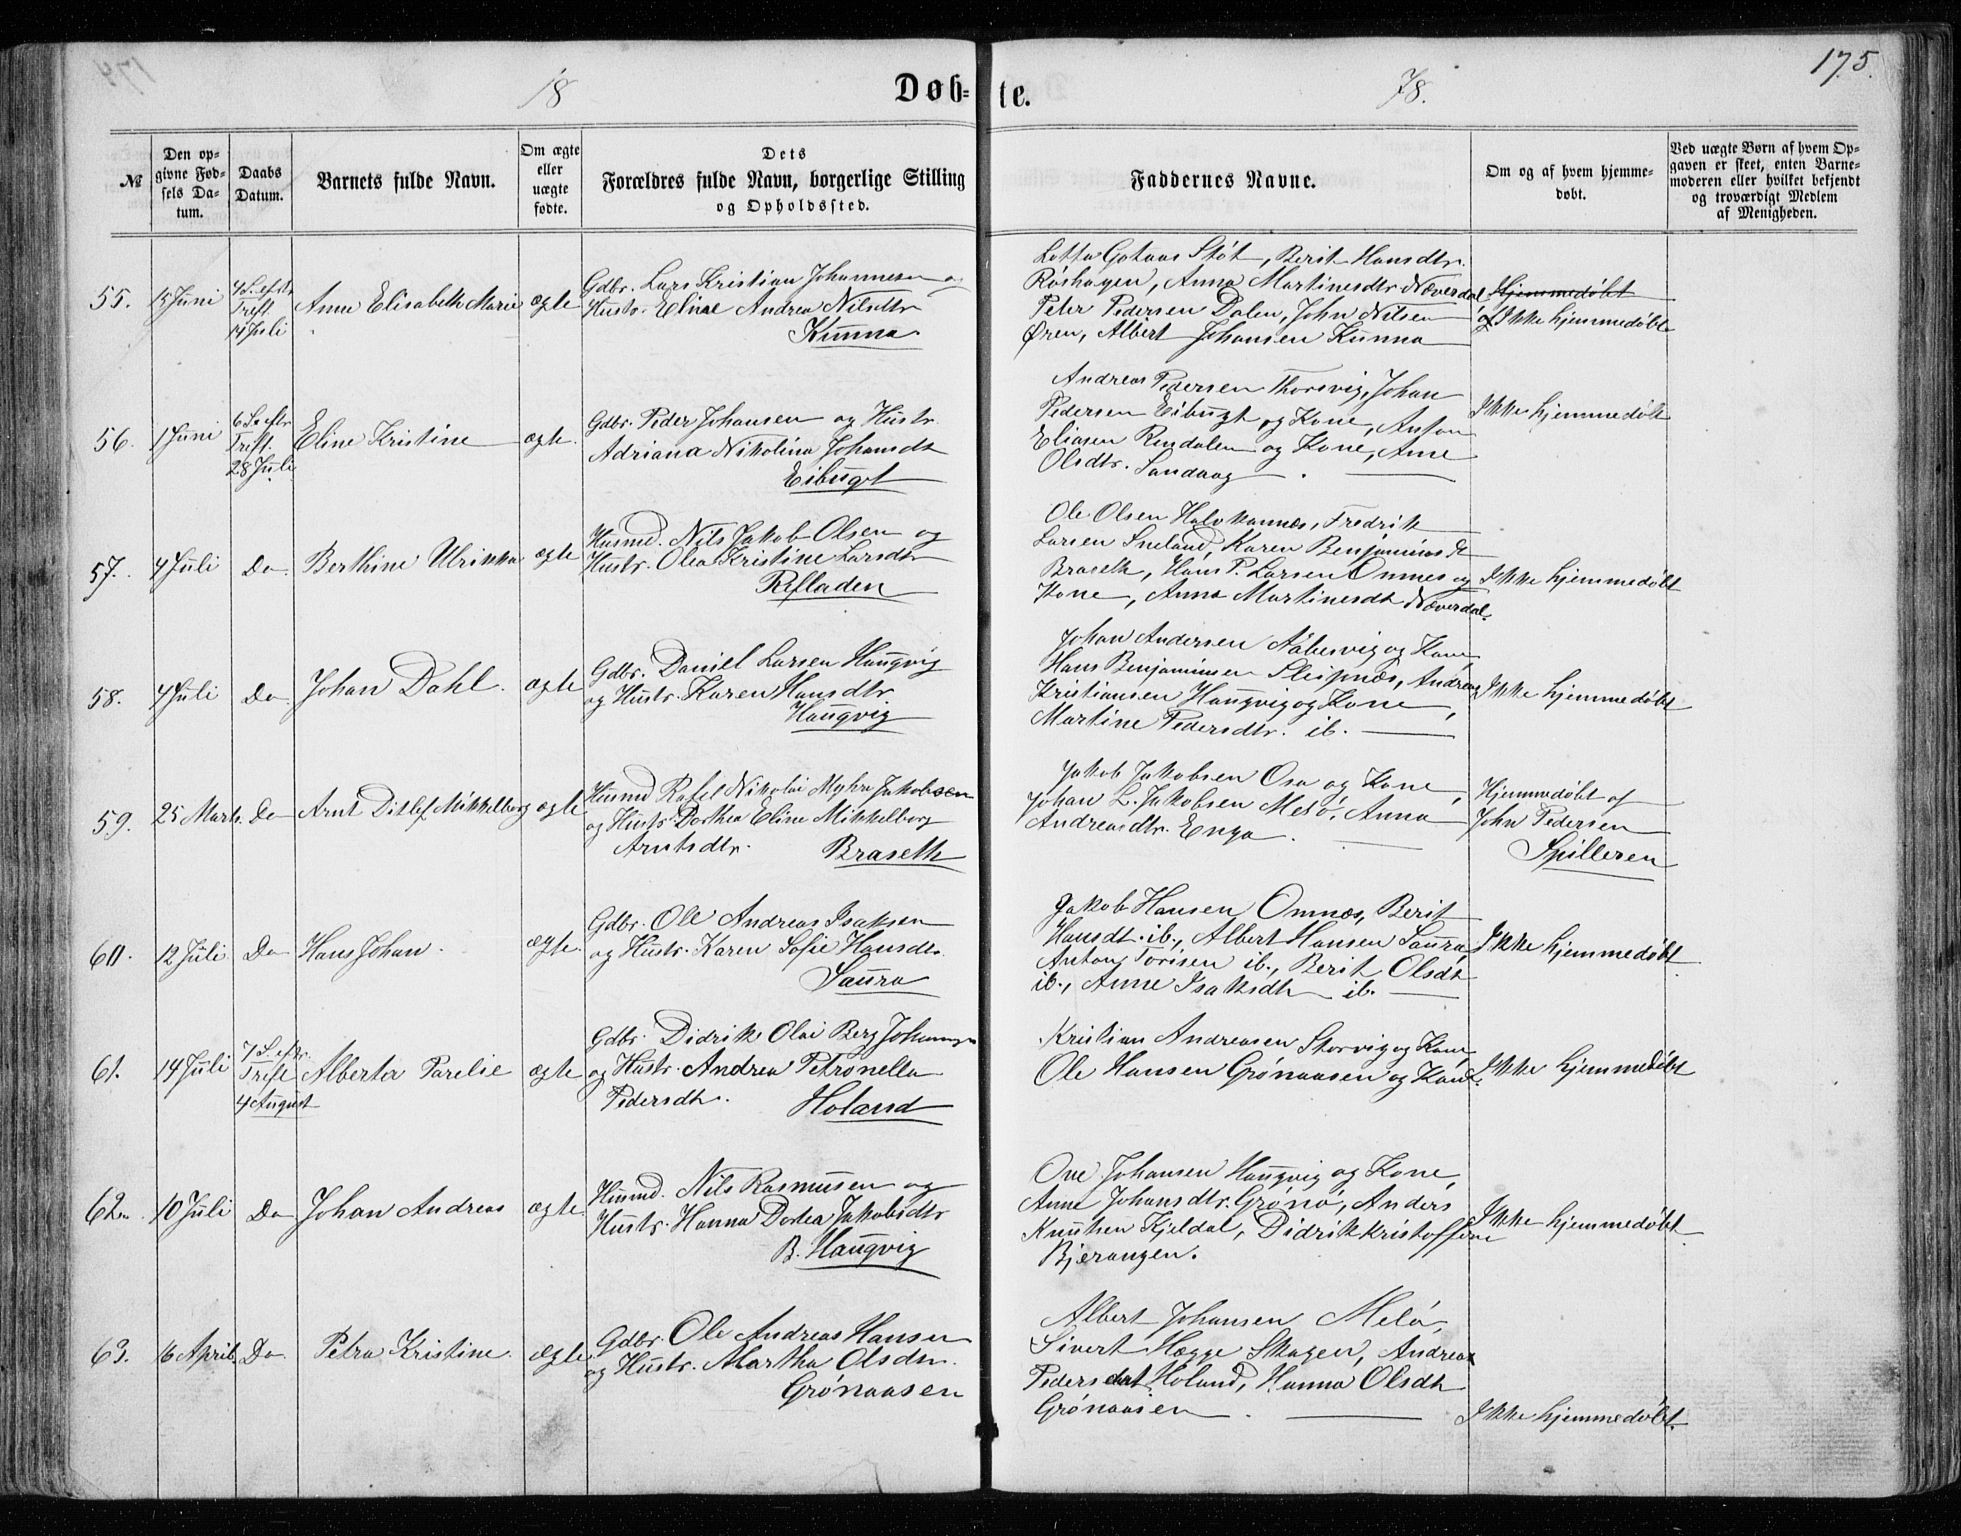 174
18
Døb-
te.
78.
175.
№
Den op-
givne Fød-
sels Da-
tum.
Daabs
Datum.
Barnets fulde Navn.
Om ægte
eller
uægte
fødte.
Dets
Forældres fulde Navn, borgerlige Stilling
og Opholdssted.
Faddernes Navne.
Om og af hvem hjemme-
døbt.
Ved uægte Børn af hvem Op-
gaven er skeet, enten Barne-
moderen eller hvilket bekjendt
og troværdigt Medlem
af Menigheden.
55.
15 Juni
4 S. eftr.
Treft
14 Juli
Anne Elisabeth Marie
ægte
Gdbr. Lars Kristian Johannesen og
Hustr. Elnae Andrea Nilsdtr
Kunna
Lotta Gotaas Støt, Berit Hansdtr.
Røshagen, Anna Martinesdtr Næverdal
Peter Pedersen Dalen, John Nilsen
Øren, Albert Johansen Kunna
Hjemmedøbt
Ikke hjemmedøbt
56.
1 Juni
6 S. eftr
Treft.
28 Juli
Eline Kristine
ægte.
Gdbr. Peder Johansen og Hustr.
Adriana Nikolina Johansdt
Eibugt
Andreas Pedersen Thorsvig, Johan
Pedersen Eibugt og Kone, Anton
Eliasen Rendalen og Kone, Ane
Olsdtr. Sandaag
Ikke hjemmedøbt
57.
4 Juli
Do.
Berthine Ulrikka
ægte
Husmd. Nils Jakob Olsen og
Hustr. Olea Kristine Larsdtr
Refladen
Ole Olsen Halvkannæs, Fredrik
Larsen Sneland, Karen Benjaminsdt
Braseth, Hans P. Larsen Omnes og
Kone, Anna Martinesdt Næverdal.
Ikke hjemmedøbt
58.
4 Juli
Do
Johan Dahl.
ægte
Gdbr. Daniel Larsen Haugvig
og Hustr. Karen Hansdtr
Haugvig
Johan Andersen Aabesvig og Kone
Hans Benjaminsen Sleipnæs, Andreas
Kristiansen Haugvig og Kone,
Martine Pedersdtr. ib.
Ikke hjemmedøbt
59.
25 Marts.
Do
Arnt Ditlef Mikkelborg
ægte
Husmd Rafel Nikolai Myhre Jakobsen
og Hustr Dorthea Eline Mikkelborg
Arntsdtr.
Braseth
Jakob Jakobsen Osa og Kone,
Johan L. Jakobsen Melø, Anna
Andreasdtr. Enga.
Hjemmedøbt af
John Pedersen
Spilleren
60.
12 Juli
Do
Hans Johan.
ægte.
Gdbr. Ole Andreas Isaksen
og Hustr. Karen Sofie Hansdtr.
Saura
Jakob Hansen Omnæs, Berit
Hansdt. ib., Albert Hansen Saura,
Anton Torisen ib., Berit Olsdt
ib., Anne Isaksdtr ib.
Ikke hjemmedøbt
61.
14 Juli
7 S. eftr.
Treft
4 August
Alberta Parelie
ægte
Gdbr. Didrik Olai Berg Johansen
og Hustr. Andrea Petronella
Pedersdt.
Holand
Kristian Andreasen Storvig og Kone
Ole Hansen Grønaasen og Kone.
Ikke hjemmedøbt
62.
10 Juli
Do
Johan Andreas
ægte.
Husmd. Nils Rasmusen og
Hustr. Hanna Dortea Jakobsdtr
B. Haugvig
Ove Johansen Haugvig og Kone,
Anne Johansdtr. Grønø, Anders
Knutsen Kjeldal, Didrik Kristoffersen
Bjerangen.
Ikke hjemmedøbt
63.
16 April.
Do.
Petra Kristine.
ægte
Gdbr. Ole Andreas Hansen
og Hustr. Martha Olsdtr.
Grønaasen
Albert Johansen Melø,
Sivert Hegge Skagen, Andrea
Pedersdat. Holand, Hanna Olsdtr
Grønaasen.
Ikke hjemmedøbt.